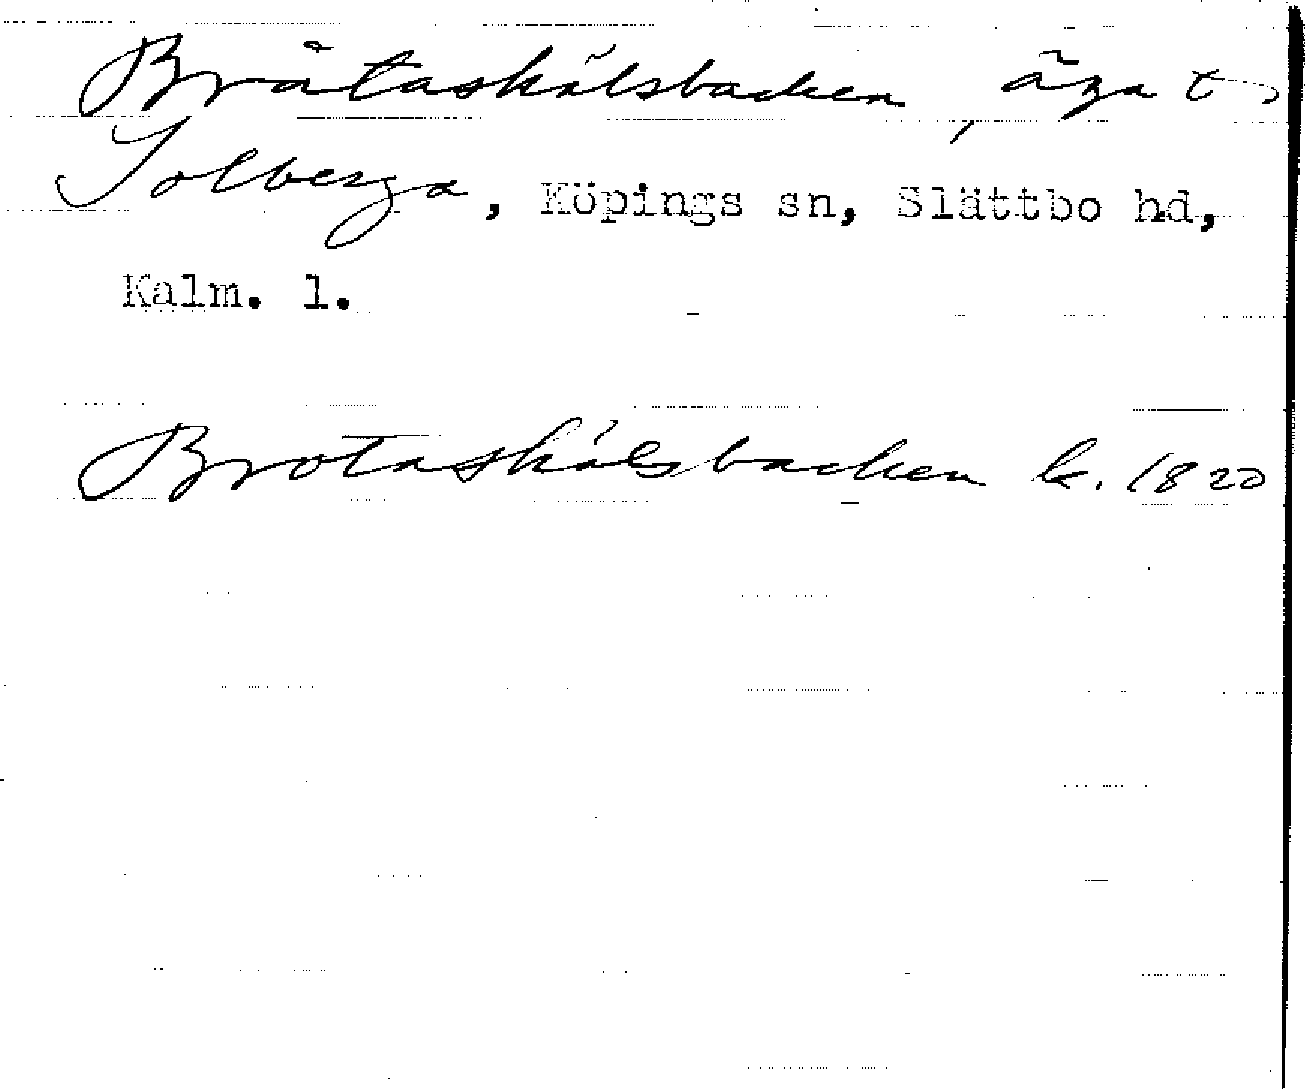 Bråtaskålsbacken, äga t.
Solberga, Köpings sn, Slättbo hd,
Kalm. l.
Brotaskålsbacken k. 1820